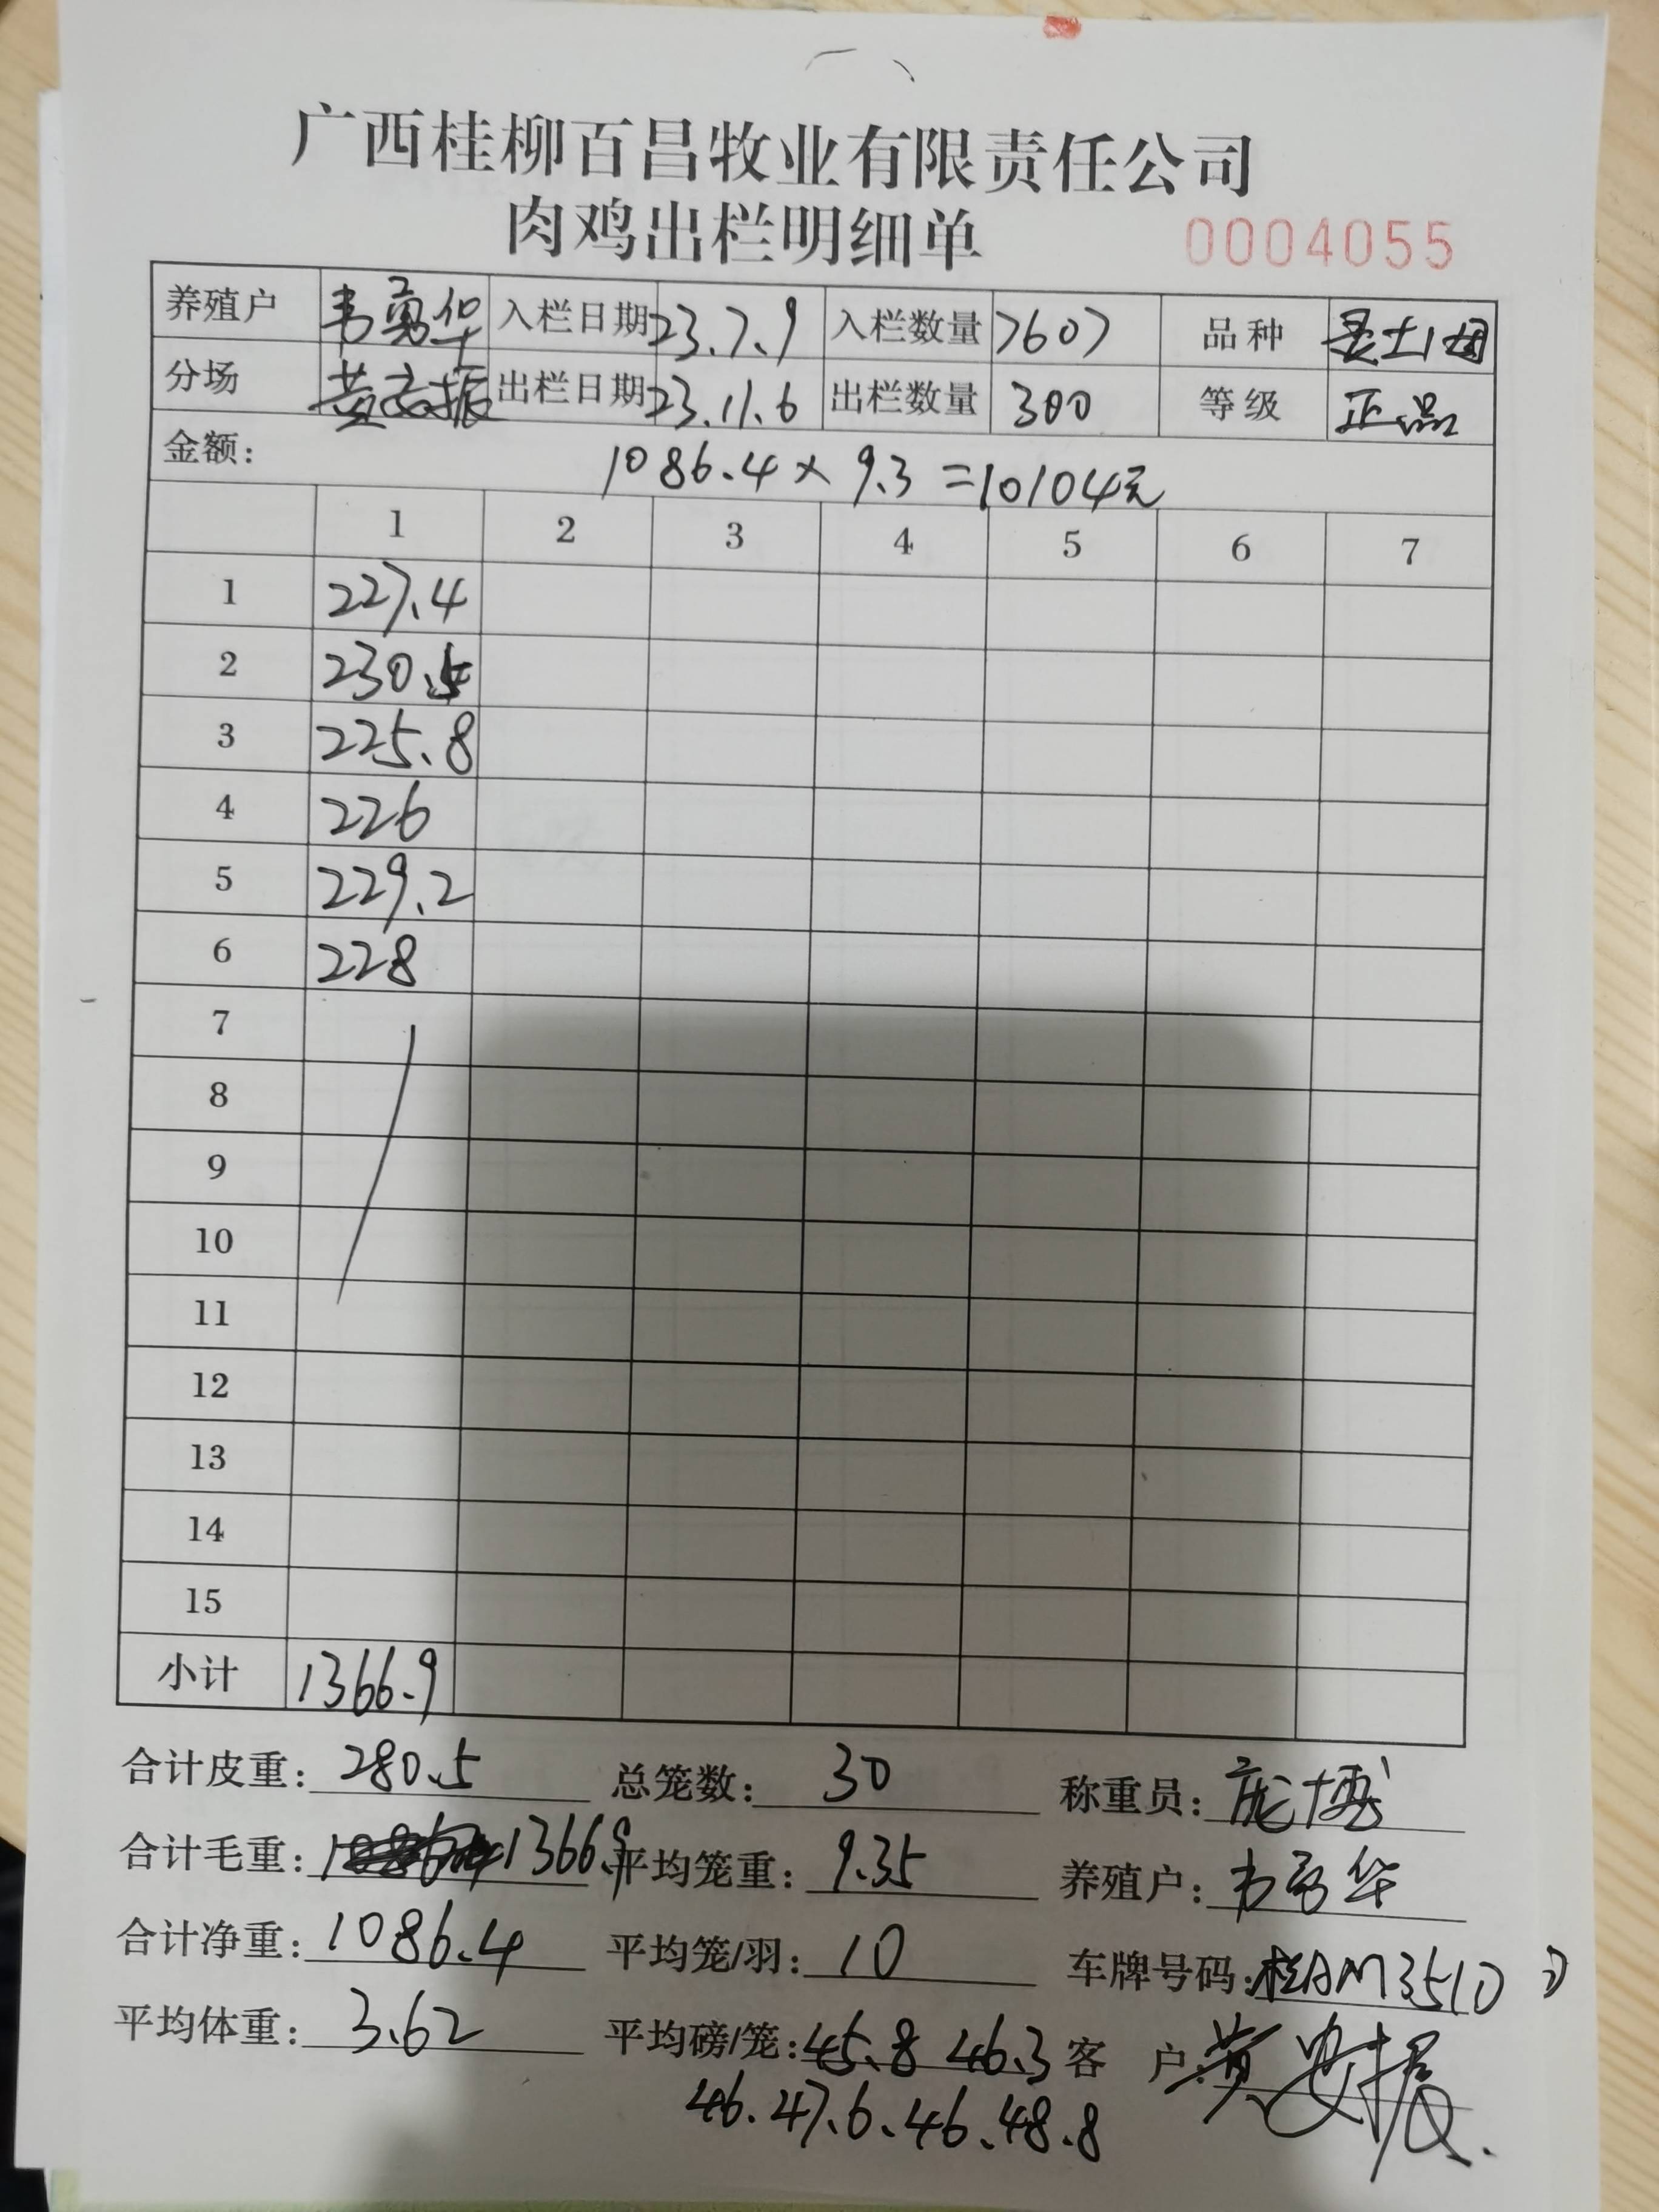 广西桂柳百昌牧业有限责任公司
肉鸡出栏明细单 0004055
养殖户 韦勇华 入栏日期 23.7.9 入栏数量 7607 品种
分场 出栏日期 23.11.6 出栏数量 300 等级 正品
金额: 1086.4 × 9.3 = 10104元
1 2 3 4 5 6 7
1 227.4
2 230.5
3 225.8
4 226
5 229.2
6 228
7
8
9
10
11
12
13
14
15
小计 1366.9
合计皮重: 280.5 总笼数: 30 称重员: 庞博
合计毛重: 1366.9 平均笼重: 9.35 养殖户: 韦勇华
合计净重: 1086.4 平均笼/羽: 10 车牌号码: 桂AM3510
平均体重: 3.62 平均磅/笼: 45.8 46.3 客户:
46. 47.6. 46. 48.8